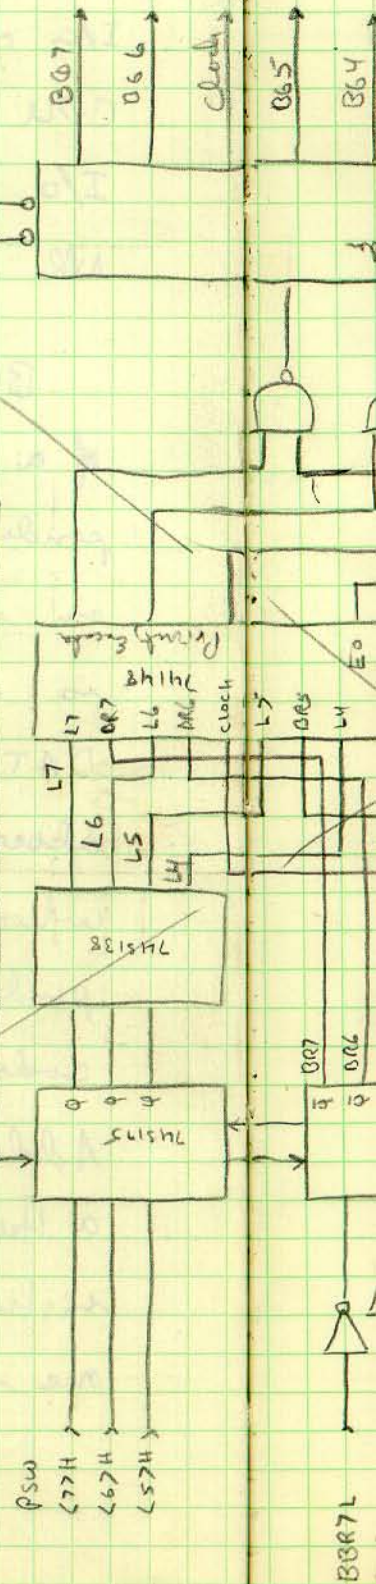 BG7
BG6
Clock
BG5
BG4
Priority Encoder
74148
E0
L7
BR7
L6
BR6
Clock
L5
BR5
L4
L7
L6
L5
L4
74S138
BR7
BR6
Q
Q
Q
Q̅
Q̅
74S175
PSW
<7>H
<6>H
<5>H
BBR7L